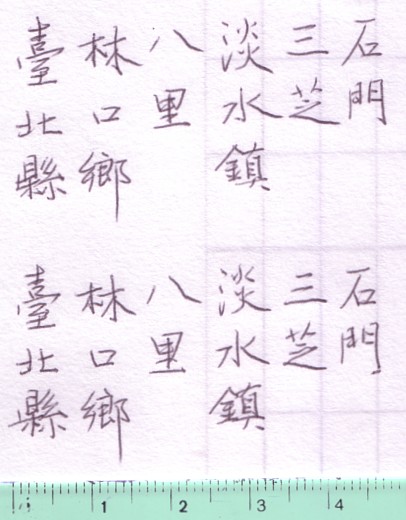 石門
三芝
淡水鎮
八里
林口鄉
臺北縣
石門
三芝
淡水鎮
八里
林口鄉
臺北縣
1 2 3 4